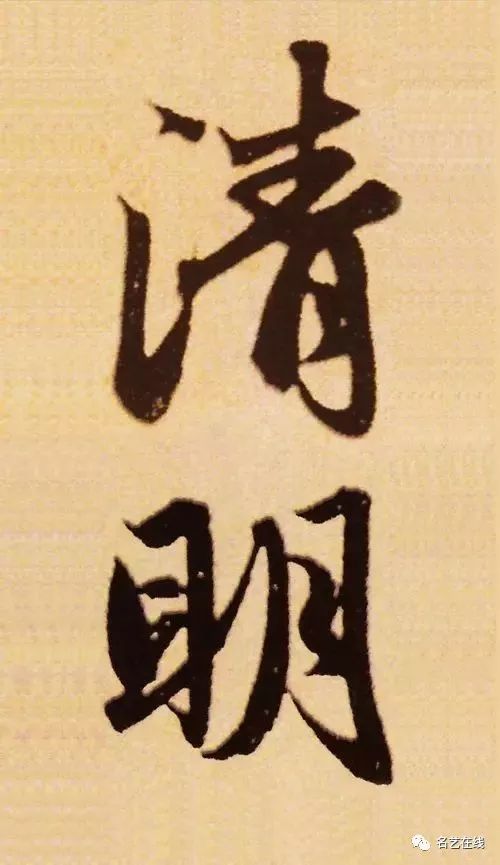 清明
名艺在线